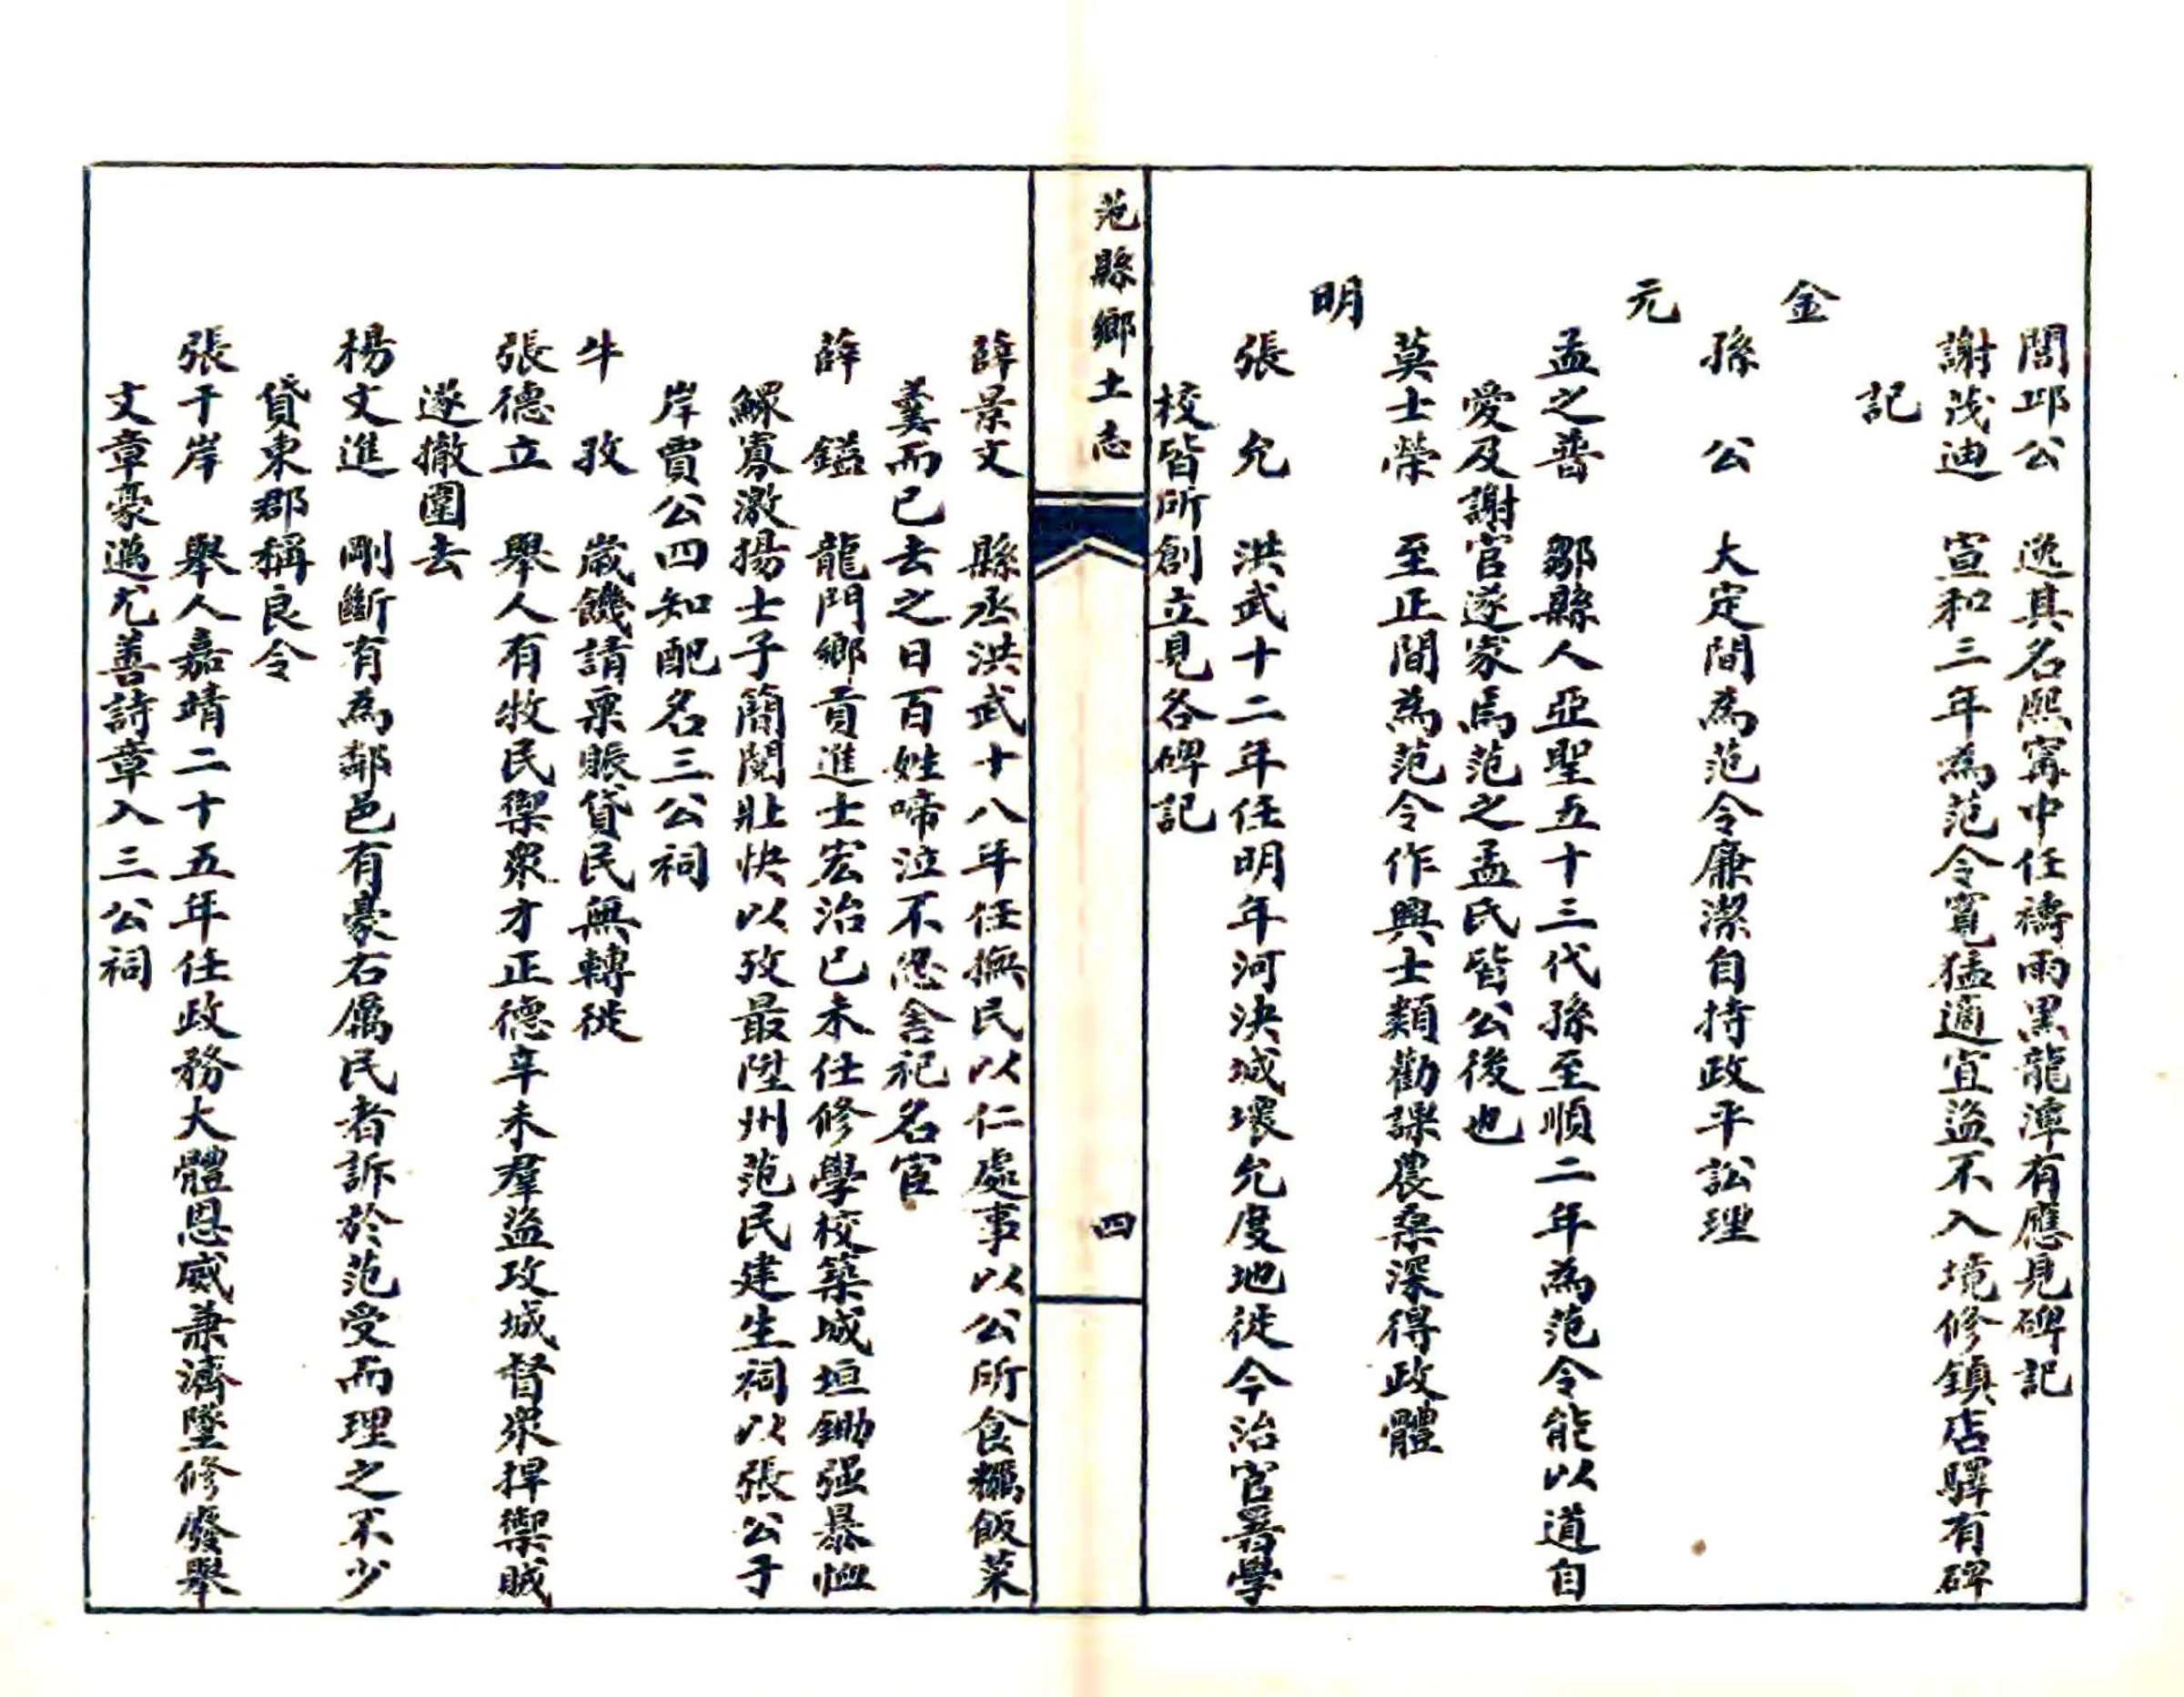 閭邱公　逸其名熙寗中任禱雨黑龍潭有應見碑記
謝茂迪　宣和三年為范令寬猛適宜盜不入境修鎮店驛有碑
記
金
孫　公　大定間為范令廉潔自持政平訟理
元
孟之普　鄒縣人亞聖五十三代孫至順二年為范令能以道自
愛及謝官遂家焉范之孟氏皆公後也
莫士榮　至正間為范令作興士類勸課農桑深得政體
明
張　允　洪武十二年任明年河決城壞允度地徙今治官署學
校皆所創立見各碑記
范縣鄉土志
四
薛景文　縣丞洪武十八年任撫民以仁處事以公所食糲飯菜
羹而已去之日百姓啼泣不忍舍祀名宦
薛　鎰　龍門鄉貢進士宏治已未任修學校築城垣鋤强暴恤
鰥寡激揚士子簡閱壯快以攷最陞州范民建生祠以張公于
岸賈公四知配名三公祠
牛　孜　歲饑請粟賬貸民無轉徙
張德立　舉人有牧民禦衆才正德辛未羣盜攻城督衆捍禦賊
遂撤圍去
楊文進　剛斷有為鄰邑有豪右厲民者訴於范受而理之不少
貸東郡稱良令
張于岸　舉人嘉靖二十五年任政務大體恩威兼濟墜修廢舉
文章豪邁尤善詩章入三公祠